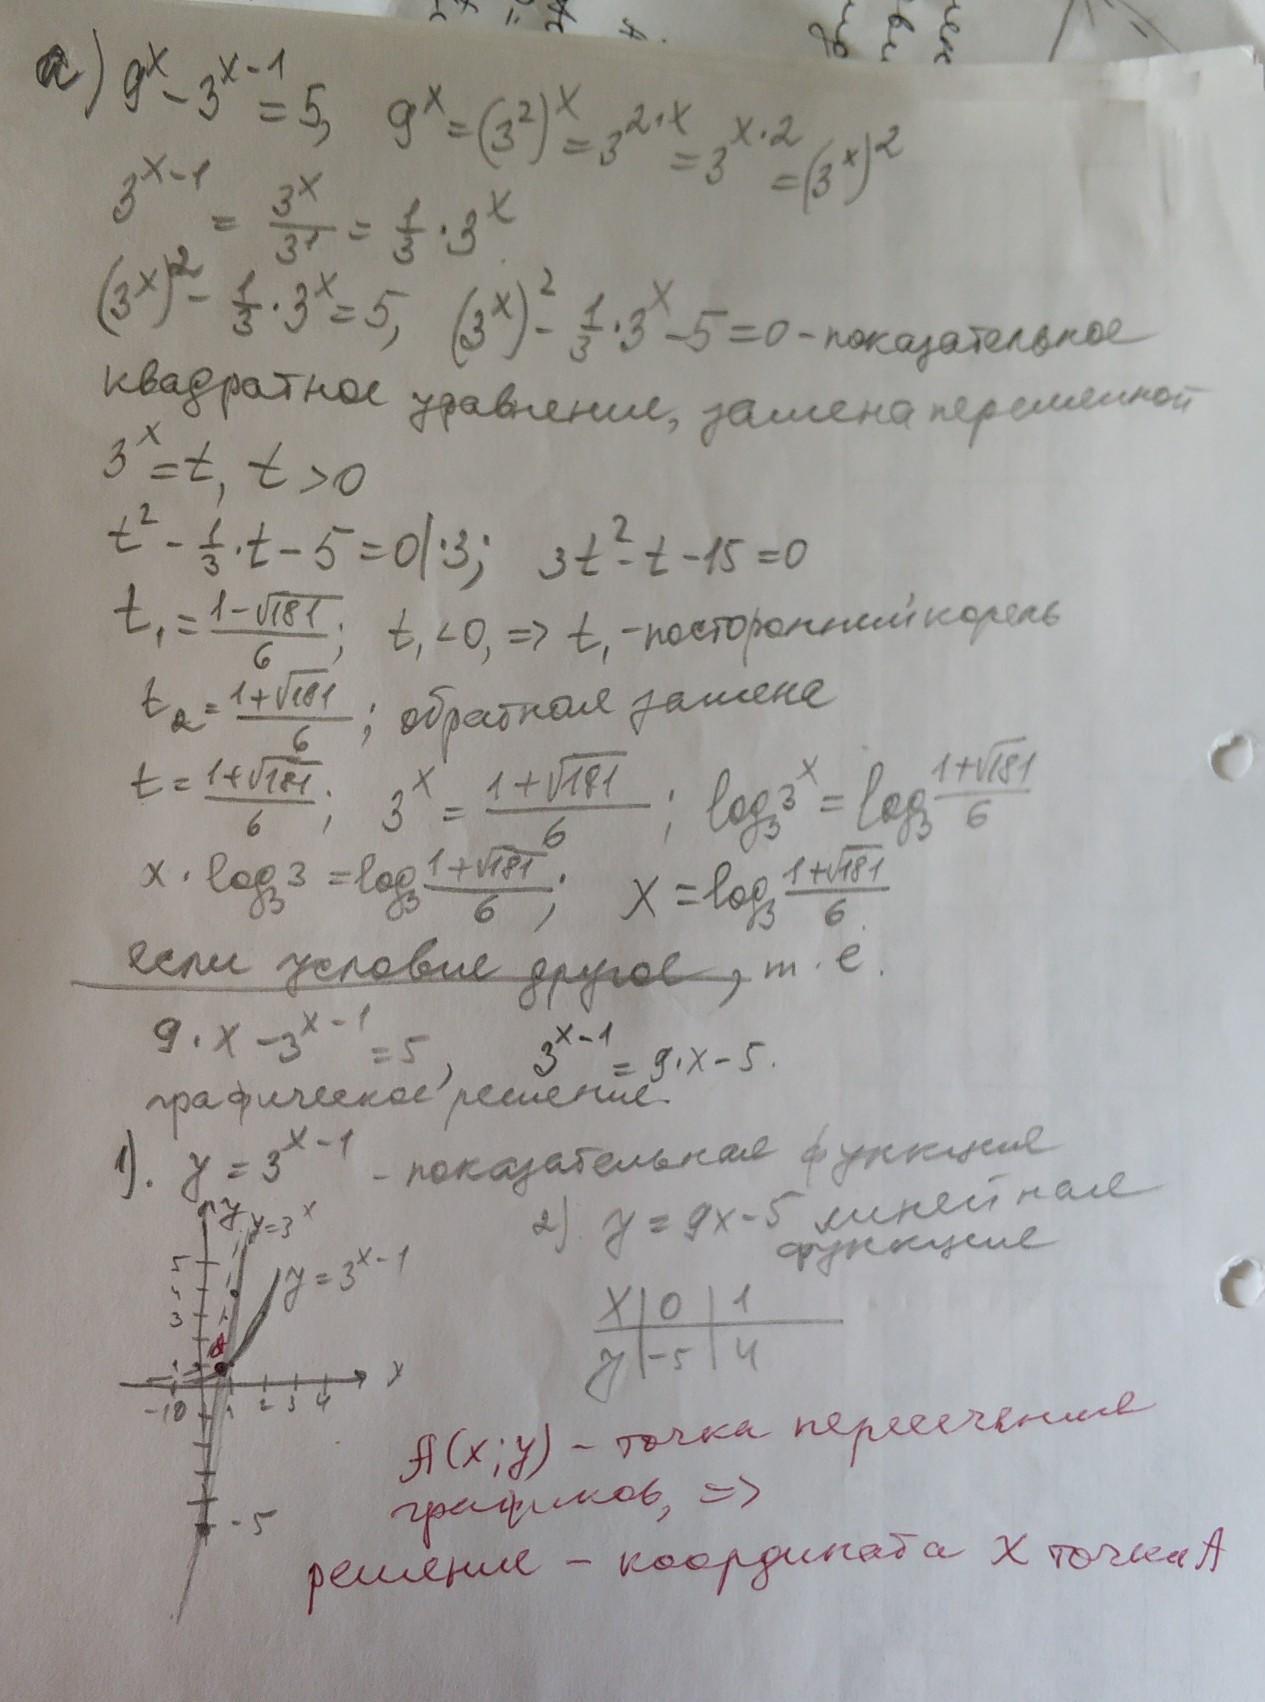 а) 9^x - 3^(x-1) = 5, 9^x = (3^2)^x = 3^(2·x) = 3^(x·2) = (3^x)^2
3^(x-1) = 3^x/3^1 = 1/3 · 3^x
(3^x)^2 - 1/3 · 3^x = 5, (3^x)^2 - 1/3 · 3^x - 5 = 0 - показательное
квадратное уравнение, замена переменной
3^x = t, t > 0
t^2 - 1/3 · t - 5 = 0 | ·3; 3t^2 - t - 15 = 0
t₁ = (1-√181)/6; t₁ < 0, => t₁ - посторонний корень
t₂ = (1+√181)/6; обратная замена
t = (1+√181)/6; 3^x = (1+√181)/6; log₃3^x = log₃ (1+√181)/6
x · log₃3 = log₃ (1+√181)/6; x = log₃ (1+√181)/6.
если условие другое, т.е.
9·x - 3^(x-1) = 5, 3^(x-1) = 9·x - 5.
графическое решение.
1). y = 3^(x-1) - показательная функция
2) y = 9x-5 линейная
функция
y
y=3^x
y = 3^(x-1)
5
4
3
1
A
x
-1 0 1 2 3 4
-5
x | 0 | 1
y | -5 | 4
A(x;y) - точка пересечения
графиков, =>
решение - координата x точки A